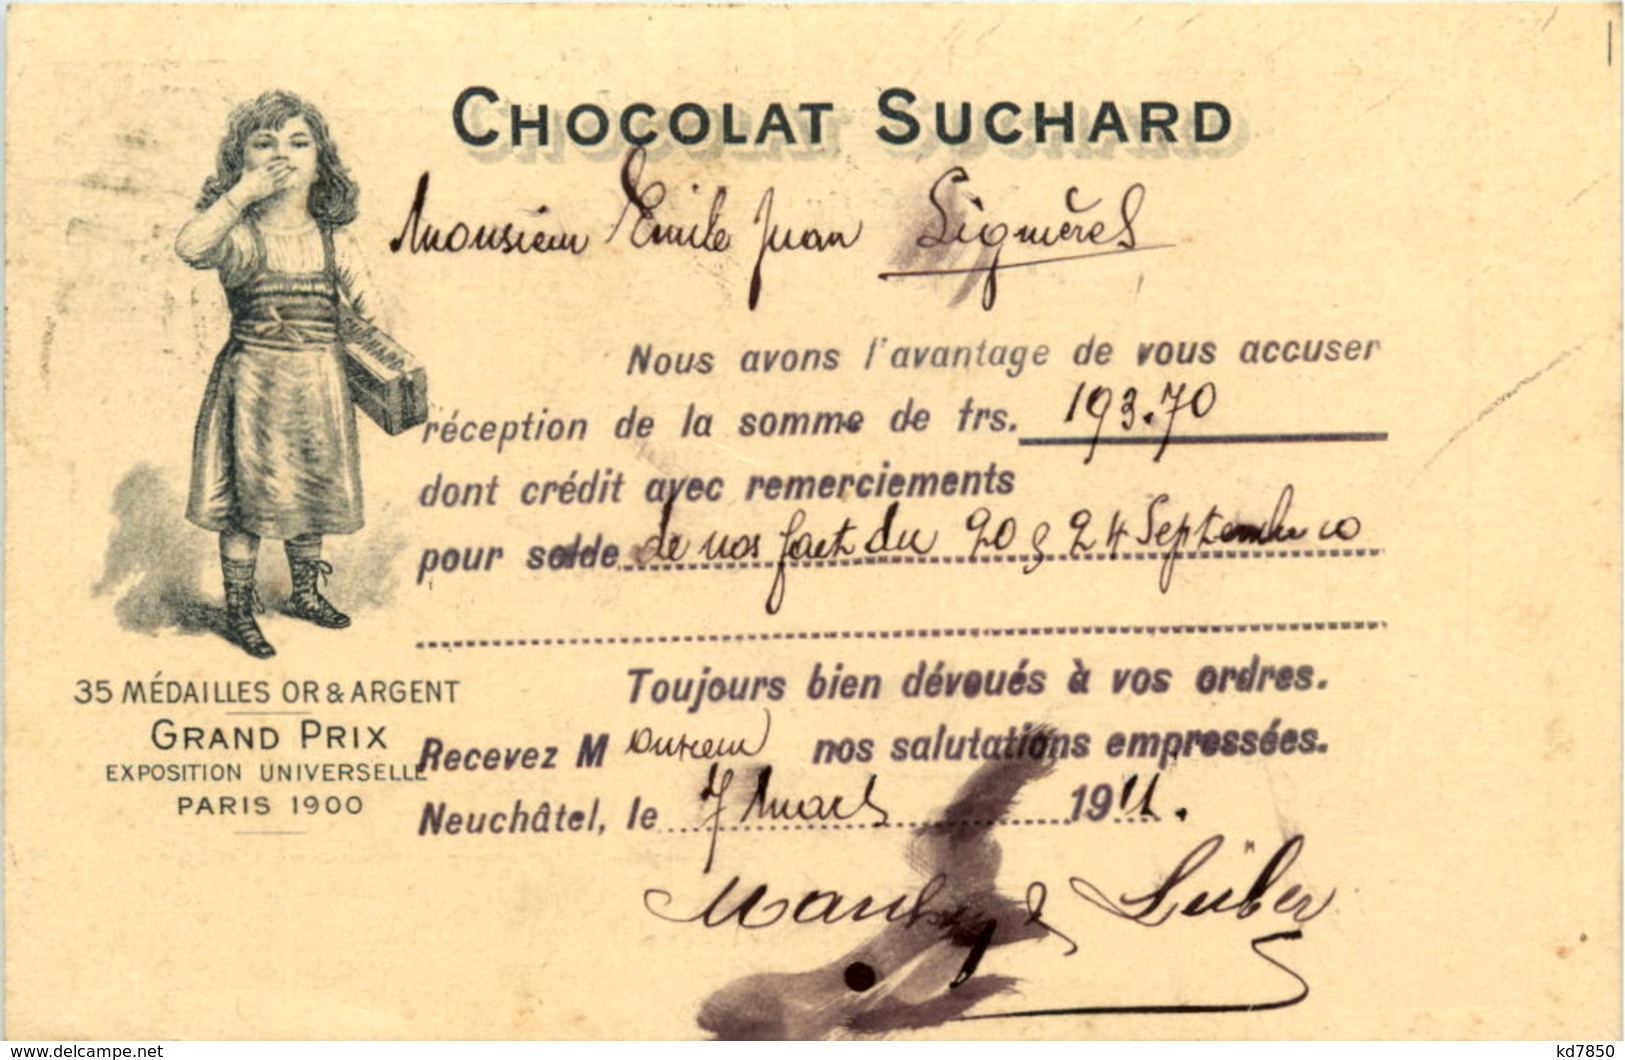 CHOCOLAT SUCHARD
Monsieur Emile Juan Lignières
Nous avons l'avantage de vous accuser
réception de la somme de frs. 193.70
dont crédit avec remerciements
pour solde de nos fact du 20 & 24 Septembre 10
Toujours bien dévoués à vos ordres.
Recevez Monsieur nos salutations empressées.
Neuchâtel, le 7 Mars 1911.
35 MÉDAILLES OR & ARGENT
GRAND PRIX
EXPOSITION UNIVERSELLE
PARIS 1900
& Lüber
www.delcampe.net
kd7850